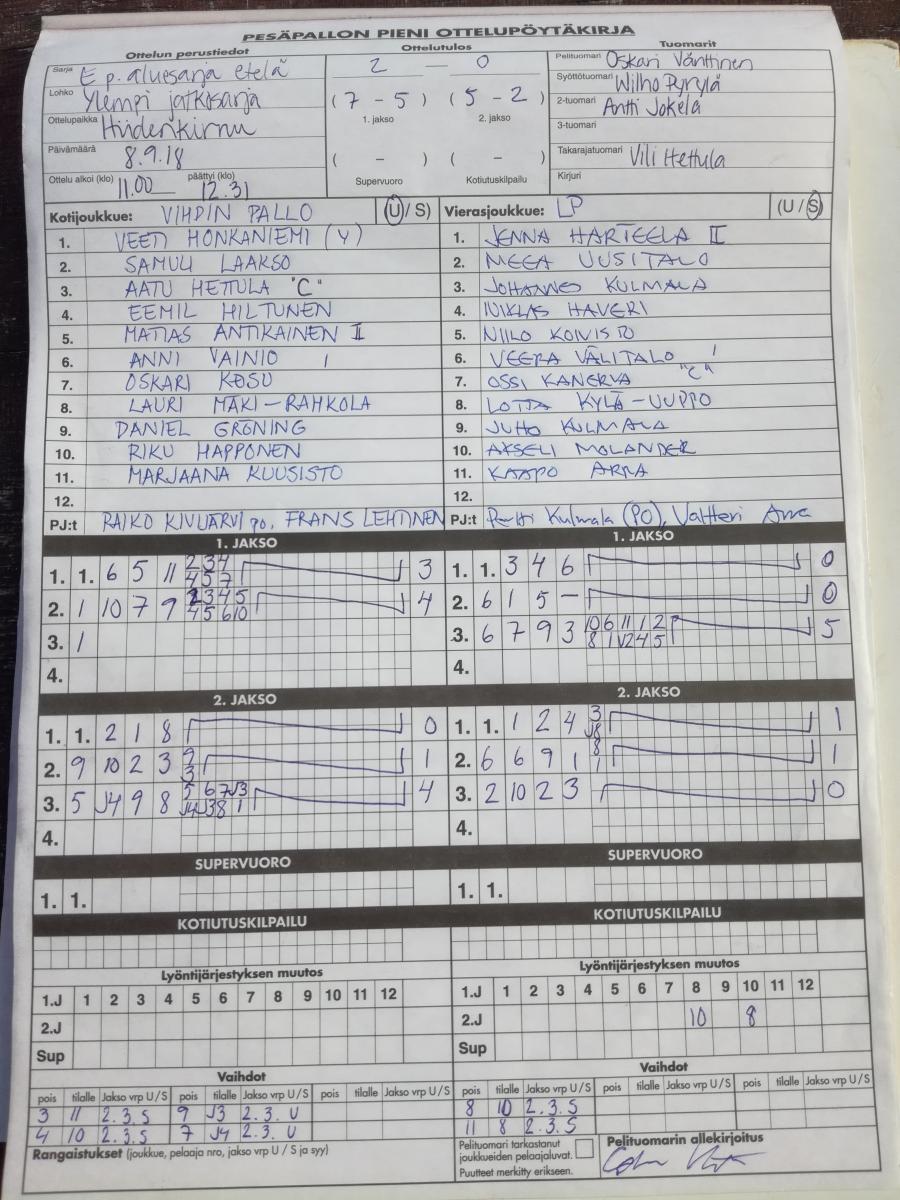 PESÄPALLON PIENI OTTELUPÖYTÄKIRJA
Ottelun perustiedot
Sarja E p. aluesarja etelä
Lohko Ylempi jatkosarja
Ottelupaikka Hiidenkirnu
Päivämäärä 8.9.18
Ottelu alkoi (klo) 11.00 päättyi (klo) 12.31
Ottelutulos
2 — 0
(7 - 5) (5 - 2)
1. jakso 2. jakso
( - ) ( - )
Supervuoro Kotiutuskilpailu
Tuomarit
Pelituomari Oskari Vänttinen
Syöttötuomari Wilho Pyrylä
2-tuomari Antti Jokela
3-tuomari
Takarajatuomari Vili Hettula
Kirjuri
Kotijoukkue: VIHDIN PALLO (U / S)
1. VEETI HONKANIEMI (V)
2. SAMULI LAAKSO
3. AATU HETTULA "C"
4. EEMIL HILTUNEN
5. MATIAS ANTIKAINEN II
6. ANNI VAINIO I
7. OSKARI KOSU
8. LAURI MÄKI-RAHKOLA
9. DANIEL GRÖNING
10. RIKU HAPPONEN
11. MARJAANA KUUSISTO
12.
PJ:t RAIKO KIVIJÄRVI po, FRANS LEHTINEN
Vierasjoukkue: LP (U / S)
1. JENNA HARTEELA II
2. MEEA UUSITALO
3. JOHANNES KULMALA
4. NIKLAS HAVERI
5. NIILO KOIVISTO
6. VEERA VÄLITALO I
7. OSSI KANERVA "C"
8. LOTTA KYLÄ-UUPPO
9. JUHO KULMALA
10. AKSELI MOLANDER
11. KAAPO ARRA
12.
PJ:t Pertti Kulmala (PO), Valtteri Arra
1. JAKSO
1. 1. 6 5 11 2 3 4 3
4 5 7
2. 1 10 7 9 2 3 4 5 4
4 5 6 10
3. 1
4.
1. JAKSO
1. 1. 3 4 6 0
2. 6 1 5 – 0
3. 6 7 9 3 10 6 11 1 2 5
8 1 V2 4 5
4.
2. JAKSO
1. 1. 2 1 8 0
2. 9 10 2 3 9 1
3
3. 5 J4 9 8 5 6 7 J3 4
J4 J3 8 1
4.
2. JAKSO
1. 1. 1 2 4 3 1
J8
2. 6 6 9 1 8 1
1
3. 2 10 2 3 0
4.
SUPERVUORO
1. 1.
SUPERVUORO
1. 1.
KOTIUTUSKILPAILU
KOTIUTUSKILPAILU
Lyöntijärjestyksen muutos
1.J 1 2 3 4 5 6 7 8 9 10 11 12
2.J
Sup
Lyöntijärjestyksen muutos
1.J 1 2 3 4 5 6 7 8 9 10 11 12
2.J 10 8
Sup
Vaihdot
pois tilalle Jakso vrp U / S pois tilalle Jakso vrp U / S pois tilalle Jakso vrp U / S
3 11 2.3.S 9 J3 2.3. U
4 10 2.3.S 7 J4 2.3. U
Rangaistukset (joukkue, pelaaja nro, jakso vrp U / S ja syy)
Vaihdot
pois tilalle Jakso vrp U / S pois tilalle Jakso vrp U / S pois tilalle Jakso vrp U / S
8 10 2.3.S
11 8 2.3.S
Pelituomari tarkastanut
joukkueiden pelaajaluvat.
Puutteet merkitty erikseen.
Pelituomarin allekirjoitus